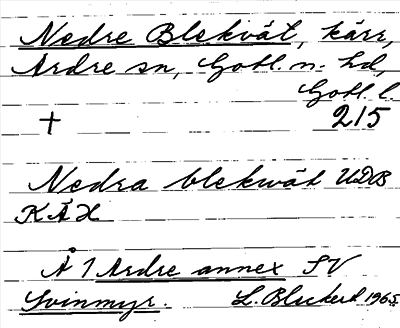 Nedre Blekvät, kärr,
Ardre sn, Gotl. n. hd,
Gotl. l.
† 215
Nedra blekvät UDOB
KÄX
Å 1 Ardre annex SV
Svinmyr. L. Bleckert 1965.